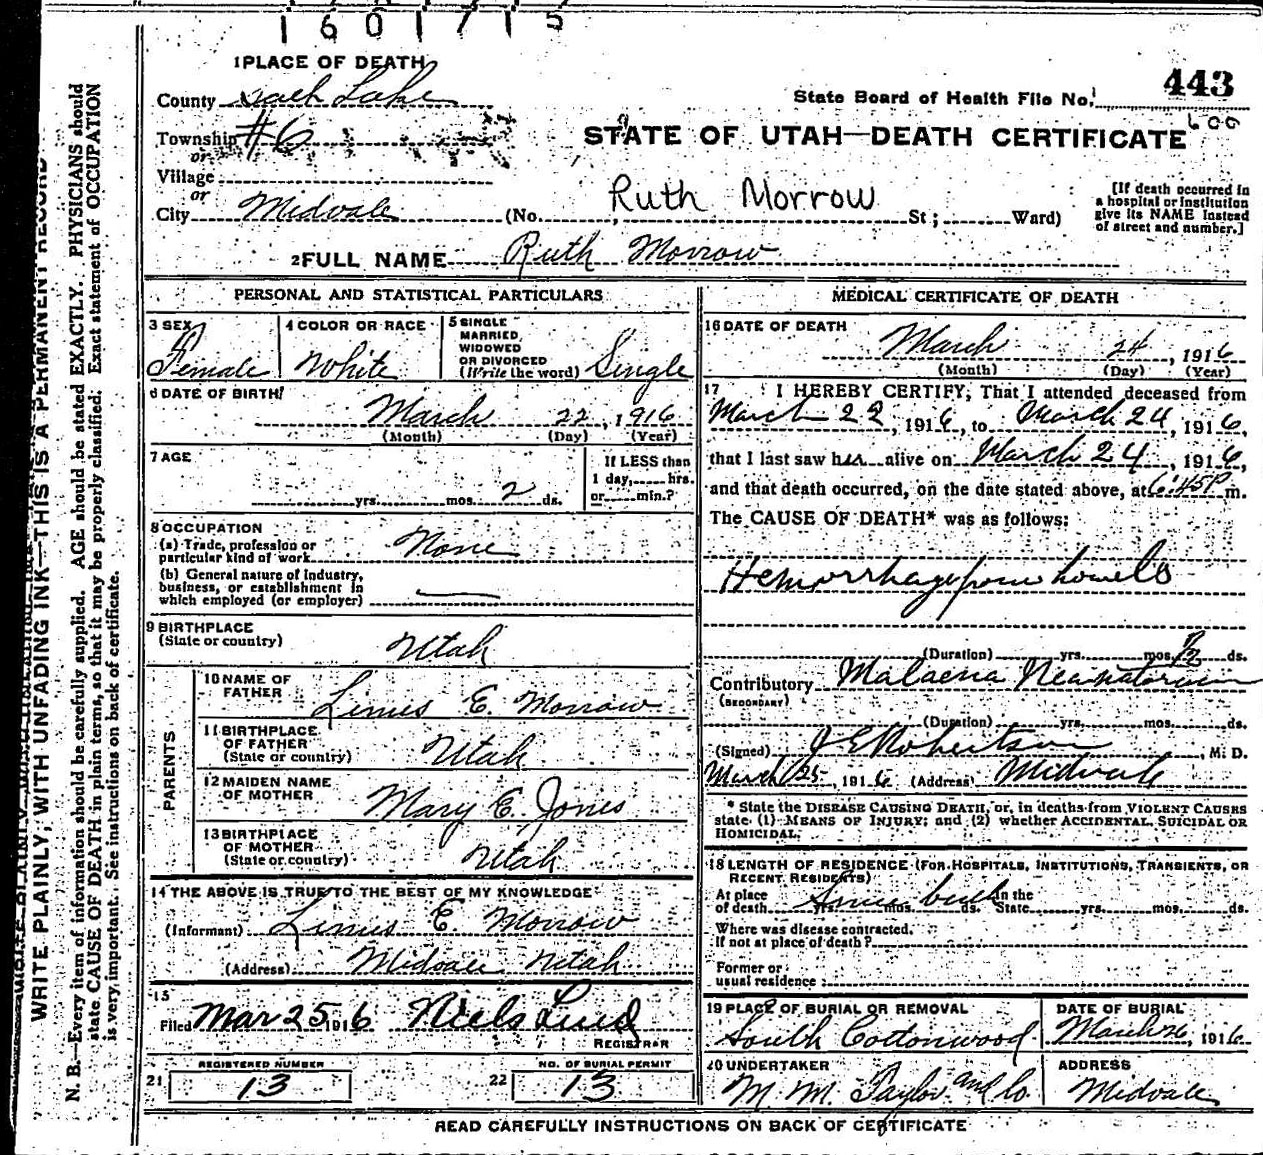 1601715
1 PLACE OF DEATH
443
State Board of Health File No.
609
County Salt Lake
Township #6
or
STATE OF UTAH—DEATH CERTIFICATE
Village
or
Ruth Morrow
City Midvale (No. St; Ward)
[If death occurred in
a hospital or institution
give its NAME instead
of street and number.]
2 FULL NAME Ruth Morrow
PERSONAL AND STATISTICAL PARTICULARS
3 SEX
Female
4 COLOR OR RACE
White
5 SINGLE
MARRIED,
WIDOWED
OR DIVORCED
(Write the word) Single
6 DATE OF BIRTH
March 22, 1916
(Month) (Day) (Year)
7 AGE
yrs. mos. 2 ds.
If LESS than
1 day, hrs.
or min.?
8 OCCUPATION
(a) Trade, profession or
particular kind of work None
(b) General nature of Industry,
business, or establishment in
which employed (or employer) —
9 BIRTHPLACE
(State or country) Utah
PARENTS
10 NAME OF
FATHER Linus E. Morrow
11 BIRTHPLACE
OF FATHER
(State or country) Utah
12 MAIDEN NAME
OF MOTHER Mary E. Jones
13 BIRTHPLACE
OF MOTHER
(State or country) Utah
14 THE ABOVE IS TRUE TO THE BEST OF MY KNOWLEDGE
(Informant) Linus E. Morrow
(Address) Midvale Utah
15
Filed Mar 25 1916 Niels Lind
REGISTRAR
REGISTERED NUMBER
21 13
NO. OF BURIAL PERMIT
22 13
MEDICAL CERTIFICATE OF DEATH
16 DATE OF DEATH
March 24, 1916
(Month) (Day) (Year)
17 I HEREBY CERTIFY, That I attended deceased from
March 22, 1916, to March 24, 1916,
that I last saw her alive on March 24, 1916,
and that death occurred, on the date stated above, at 6:45P m.
The CAUSE OF DEATH* was as follows:
Hemorrhage from bowels
(Duration) yrs. mos. ds.
Contributory Malaena Neonatorium
(SECONDARY)
(Duration) yrs. mos. ds.
(Signed) J E Robertson, M. D.
March 25, 1916 (Address) Midvale
* State the DISEASE CAUSING DEATH, or, in deaths from VIOLENT CAUSES
state (1) MEANS OF INJURY; and (2) whether ACCIDENTAL, SUICIDAL OR
HOMICIDAL.
18 LENGTH OF RESIDENCE (FOR HOSPITALS, INSTITUTIONS, TRANSIENTS, OR
RECENT RESIDENTS)
At place
of death Since birth yrs. mos. ds.
In the
State yrs. mos. ds.
Where was disease contracted,
If not at place of death?
Former or
usual residence
19 PLACE OF BURIAL OR REMOVAL
South Cottonwood
DATE OF BURIAL
March 26, 1916
20 UNDERTAKER
M. M. Taylor and Co.
ADDRESS
Midvale
READ CAREFULLY INSTRUCTIONS ON BACK OF CERTIFICATE
WRITE PLAINLY, WITH UNFADING INK—THIS IS A PERMANENT RECORD
N. B.—Every item of information should be carefully supplied. AGE should be stated EXACTLY. PHYSICIANS should
state CAUSE OF DEATH in plain terms, so that it may be properly classified. Exact statement of OCCUPATION
is very important. See instructions on back of certificate.